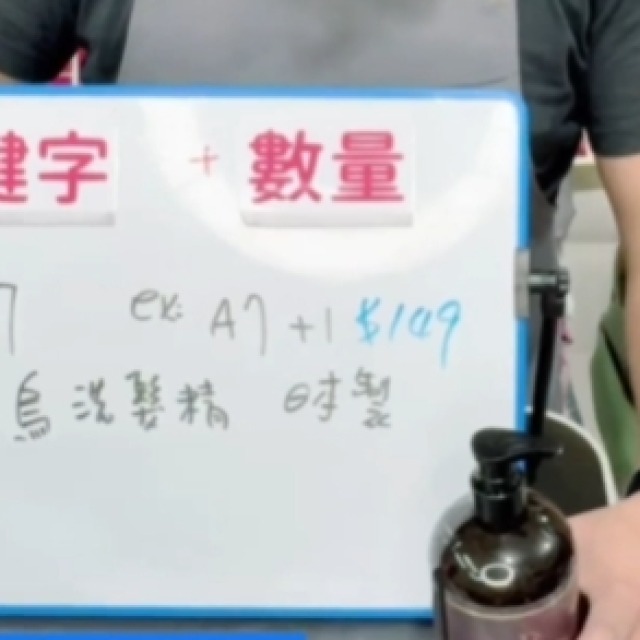 鍵字 + 數量
7 ex: A7 +1 $149
烏洗髮精 日本製